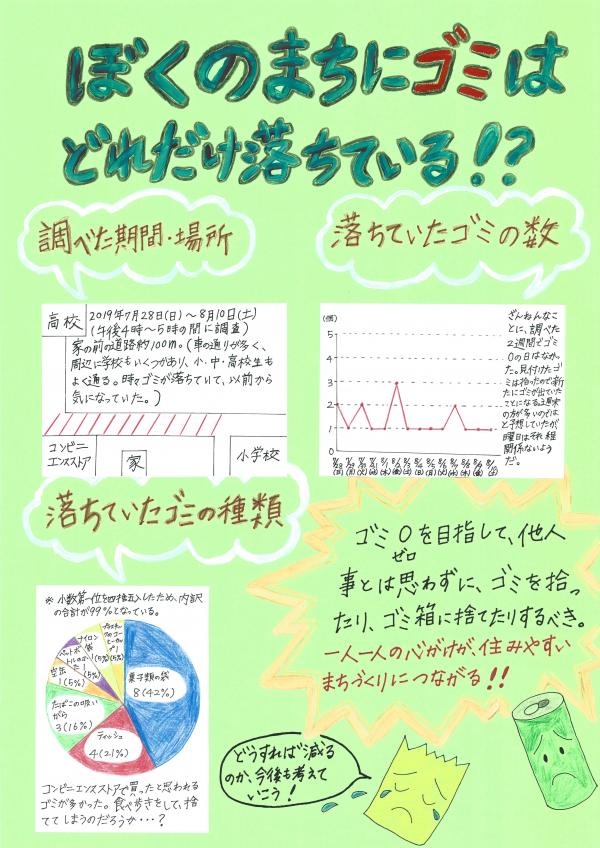 ぼくのまちにゴミは
どれだけ落ちている!?
調べた期間・場所
高校
2019年7月28日(日)～8月10日(土)
(午後4時～5時の間に調査)
家の前の道路約100m。(車の通りが多く、
周辺に学校もいくつかあり、小・中・高校生も
よく通る。時々ゴミが落ちていて、以前から
気になっていた。)
コンビニ
エンスストア
家
小学校
落ちていたゴミの数
(個)
5
4
3
2
1
0
7/28 7/29 7/30 7/31 8/1 8/2 8/3 8/4 8/5 8/6 8/7 8/8 8/9 8/10
(日) (月) (火) (水) (木) (金) (土) (日) (月) (火) (水) (木) (金) (土)
ざんねんなこ
とに、調べた
2週間でゴミ
0の日はなか
った。見付けたゴ
ミは拾ったので新
たにゴミが出ていた
ことになる。週末
の方が多いのでは
と予想していたが、
曜日はそれ程
関係ないよう
だ。
落ちていたゴミの種類
※小数第一位を四捨五入したため、内訳
の合計が99%となっている。
菓子類の袋
8(42%)
ティッシュ
4(21%)
たばこの吸い
がら
3(16%)
空缶
1(5%)
ペットボ
トルのふた
1(5%)
ナイロン
袋
1(5%)
(5%)
コンビニエンスストアで買ったと思われる
ゴミが多かった。食べ歩きをして、捨
ててしまうのだろうか・・・?
ゴミ0を目指して、他人
ゼロ
事とは思わずに、ゴミを拾っ
たり、ゴミ箱に捨てたりするべき。
一人一人の心がけが、住みやすい
まちづくりにつながる!!
どうすれば減る
のか、今後も考えて
いこう!